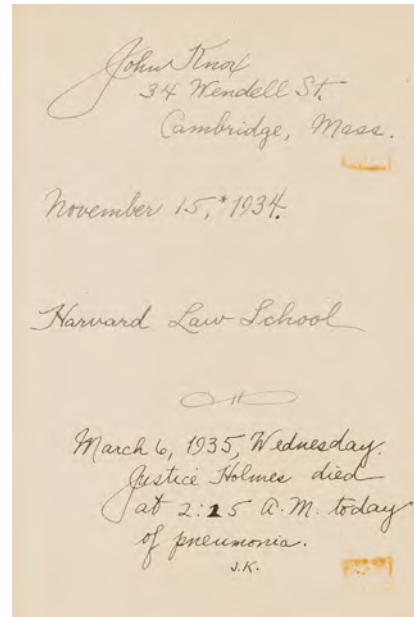 John Knox
34 Wendell St.
Cambridge, Mass.
November 15,* 1934.
Harvard Law School
March 6, 1935, Wednesday.
Justice Holmes died
at 2:15 A.M. today
of pneumonia.
J.K.